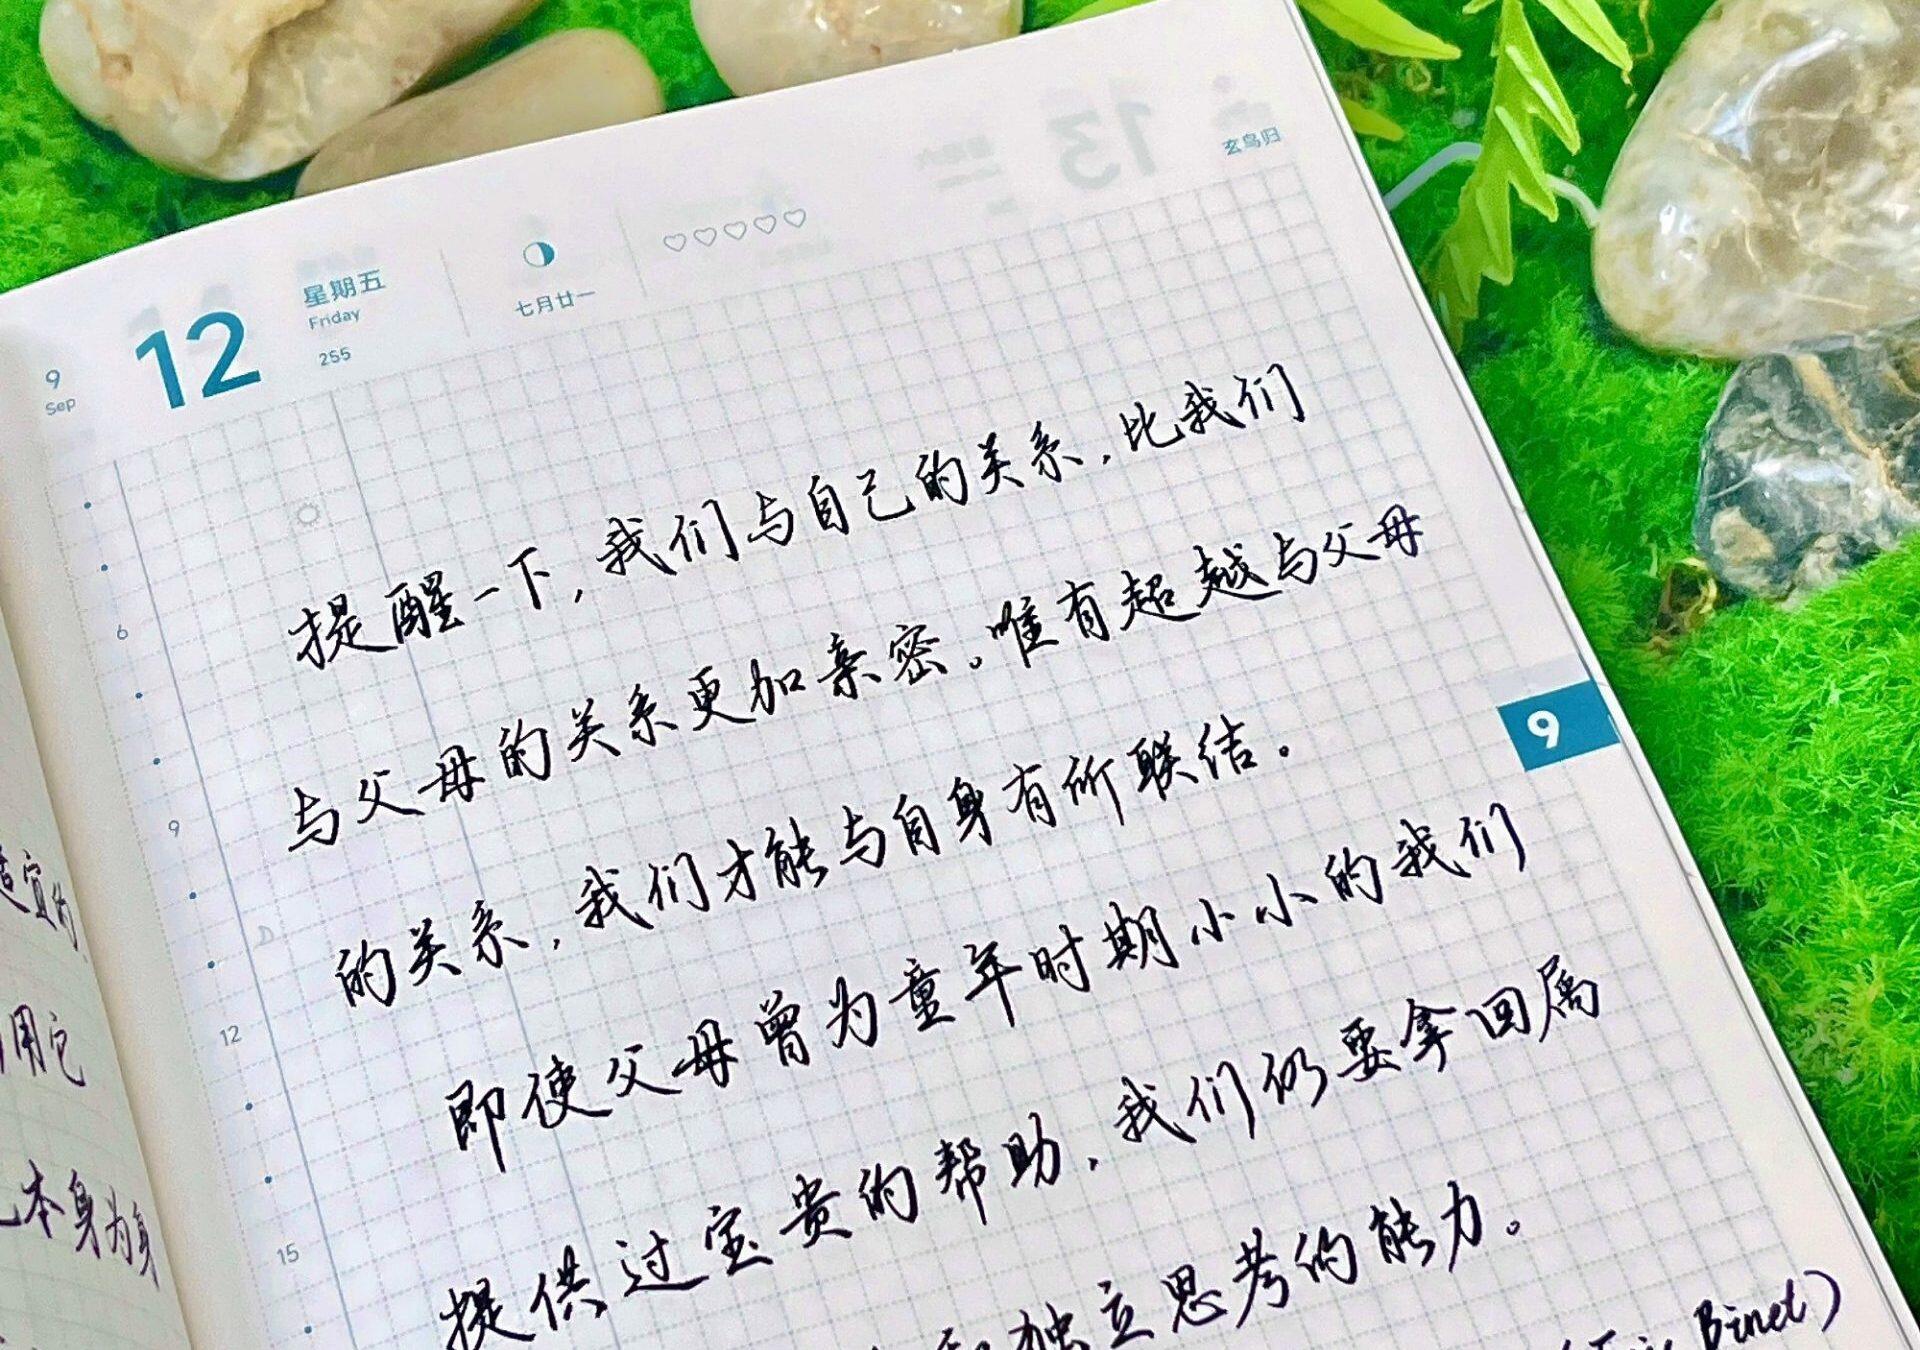 9
Sep
12
星期五
Friday
255
七月廿一
♡♡♡♡♡
13
玄鸟归
提醒一下，我们与自己的关系，比我们
与父母的关系更加亲密。唯有超越与父母
的关系，我们才能与自身有所联结。
即使父母曾为童年时期小小的我们
提供过宝贵的帮助，我们仍要拿回属
独立思考的能力。
Binet)
6
9
12
15
9
宜的
用它
本身为身